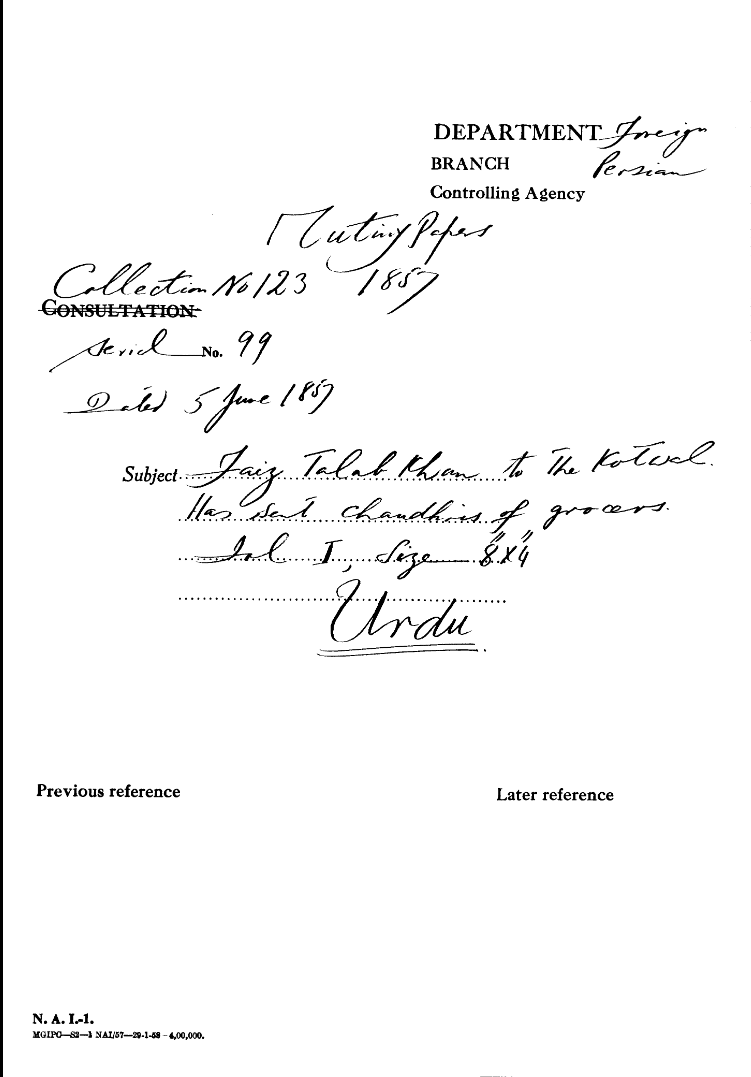 DEPARTMENT Foreign
BRANCH Persian
Controlling Agency
Mutiny Papers
Collection No 123 1857
CONSULTATION
Serial No. 99
Dated 5 June 1857
Subject Faiz Talab Khan to the Kotwal.
Has sent Chaudhris of grocers.
Fol I, Size 8" X 4"
Urdu
Previous reference
Later reference
N. A. I.-1.
MGIPC—S2—1 NAI/57—29-1-58 - 4,00,000.